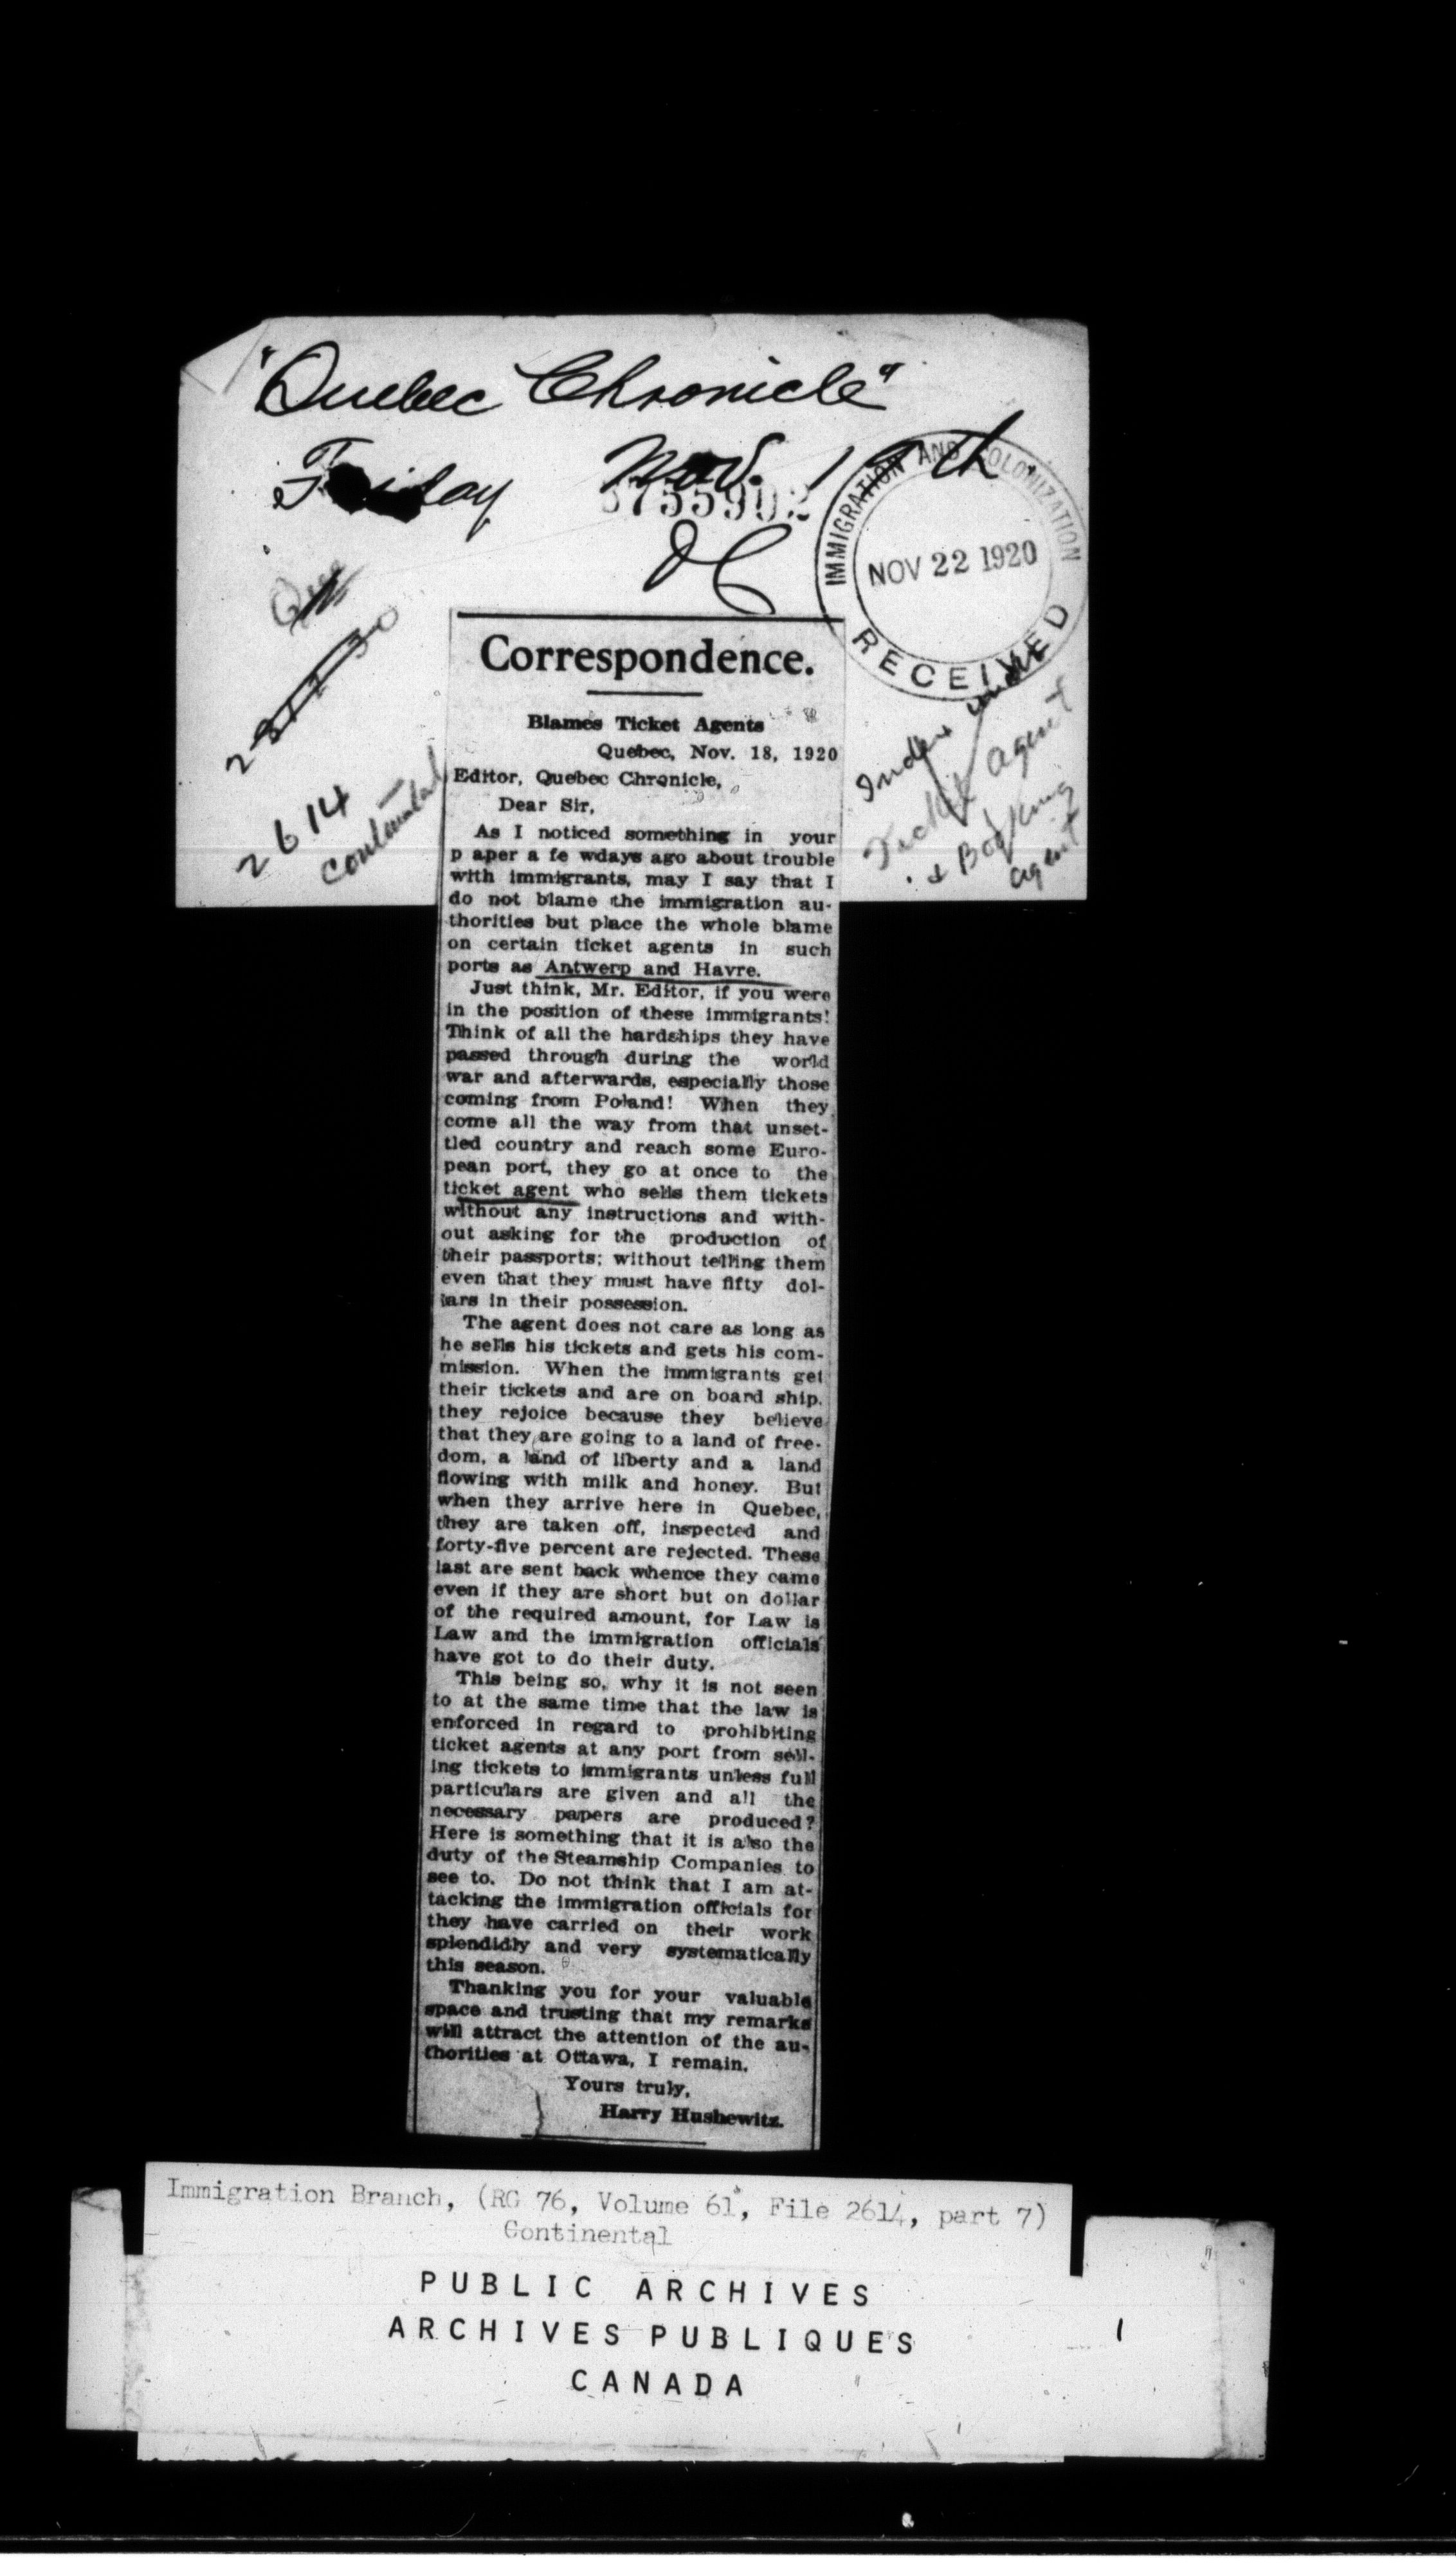 "Quebec Chronicle"
Friday Nov. 19th
3755902
IMMIGRATION AND COLONIZATION
NOV 22 1920
RECEIVED
Que
2614
Continental
Index under
Ticket agent
& Booking
agent
Correspondence.
Blames Ticket Agents
Quebec, Nov. 18, 1920
Editor, Quebec Chronicle,
Dear Sir,
As I noticed something in your
p aper a fe wdays ago about trouble
with immigrants, may I say that I
do not blame the immigration au-
thorities but place the whole blame
on certain ticket agents in such
ports as Antwerp and Havre.
Just think, Mr. Editor, if you were
in the position of these immigrants!
Think of all the hardships they have
passed through during the world
war and afterwards, especially those
coming from Poland! When they
come all the way from that unset-
tled country and reach some Euro-
pean port, they go at once to the
ticket agent who sells them tickets
without any instructions and with-
out asking for the production of
their passports; without telling them
even that they must have fifty dol-
lars in their possession.
The agent does not care as long as
he sells his tickets and gets his com-
mission. When the immigrants get
their tickets and are on board ship,
they rejoice because they believe
that they are going to a land of free-
dom, a land of liberty and a land
flowing with milk and honey. But
when they arrive here in Quebec,
they are taken off, inspected and
forty-five percent are rejected. These
last are sent back whence they came
even if they are short but on dollar
of the required amount, for Law is
Law and the immigration officials
have got to do their duty.
This being so, why it is not seen
to at the same time that the law is
enforced in regard to prohibiting
ticket agents at any port from sell-
ing tickets to immigrants unless full
particulars are given and all the
necessary papers are produced?
Here is something that it is also the
duty of the Steamship Companies to
see to. Do not think that I am at-
tacking the immigration officials for
they have carried on their work
splendidly and very systematically
this season.
Thanking you for your valuable
space and trusting that my remarks
will attract the attention of the au-
thorities at Ottawa, I remain.
Yours truly,
Harry Hushewitz.
Immigration Branch, (RG 76, Volume 61, File 2614, part 7)
Continental
PUBLIC ARCHIVES
ARCHIVES PUBLIQUES
CANADA
1